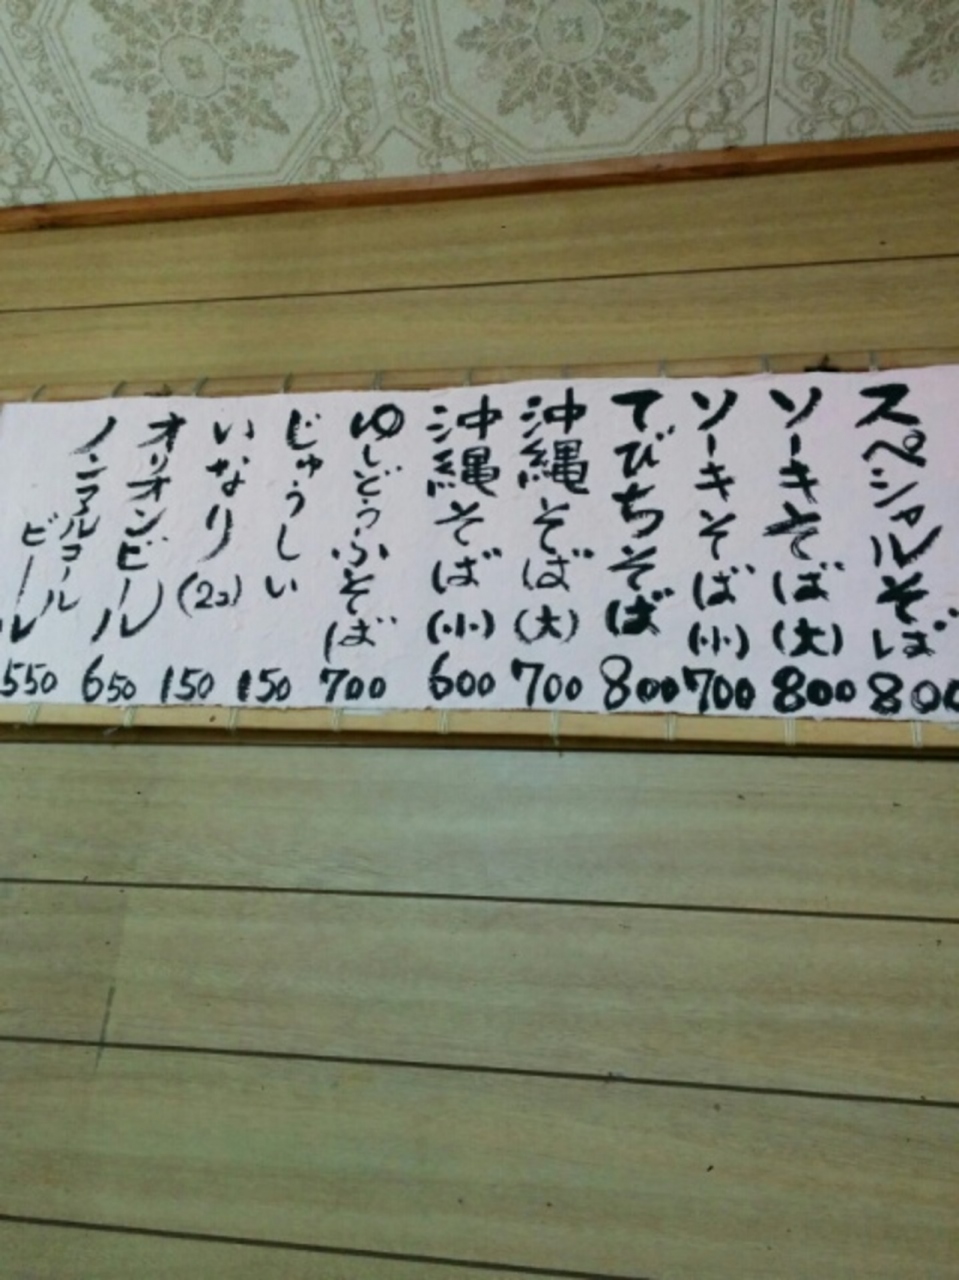 スペシャルそば 800
ソーキそば(大) 800
ソーキそば(小) 700
てびちそば 800
沖縄そば(大) 700
沖縄そば(小) 600
ゆしどうふそば 700
じゅうしい 150
いなり(2コ) 150
オリオンビール 650
ノンアルコール
ビール 550